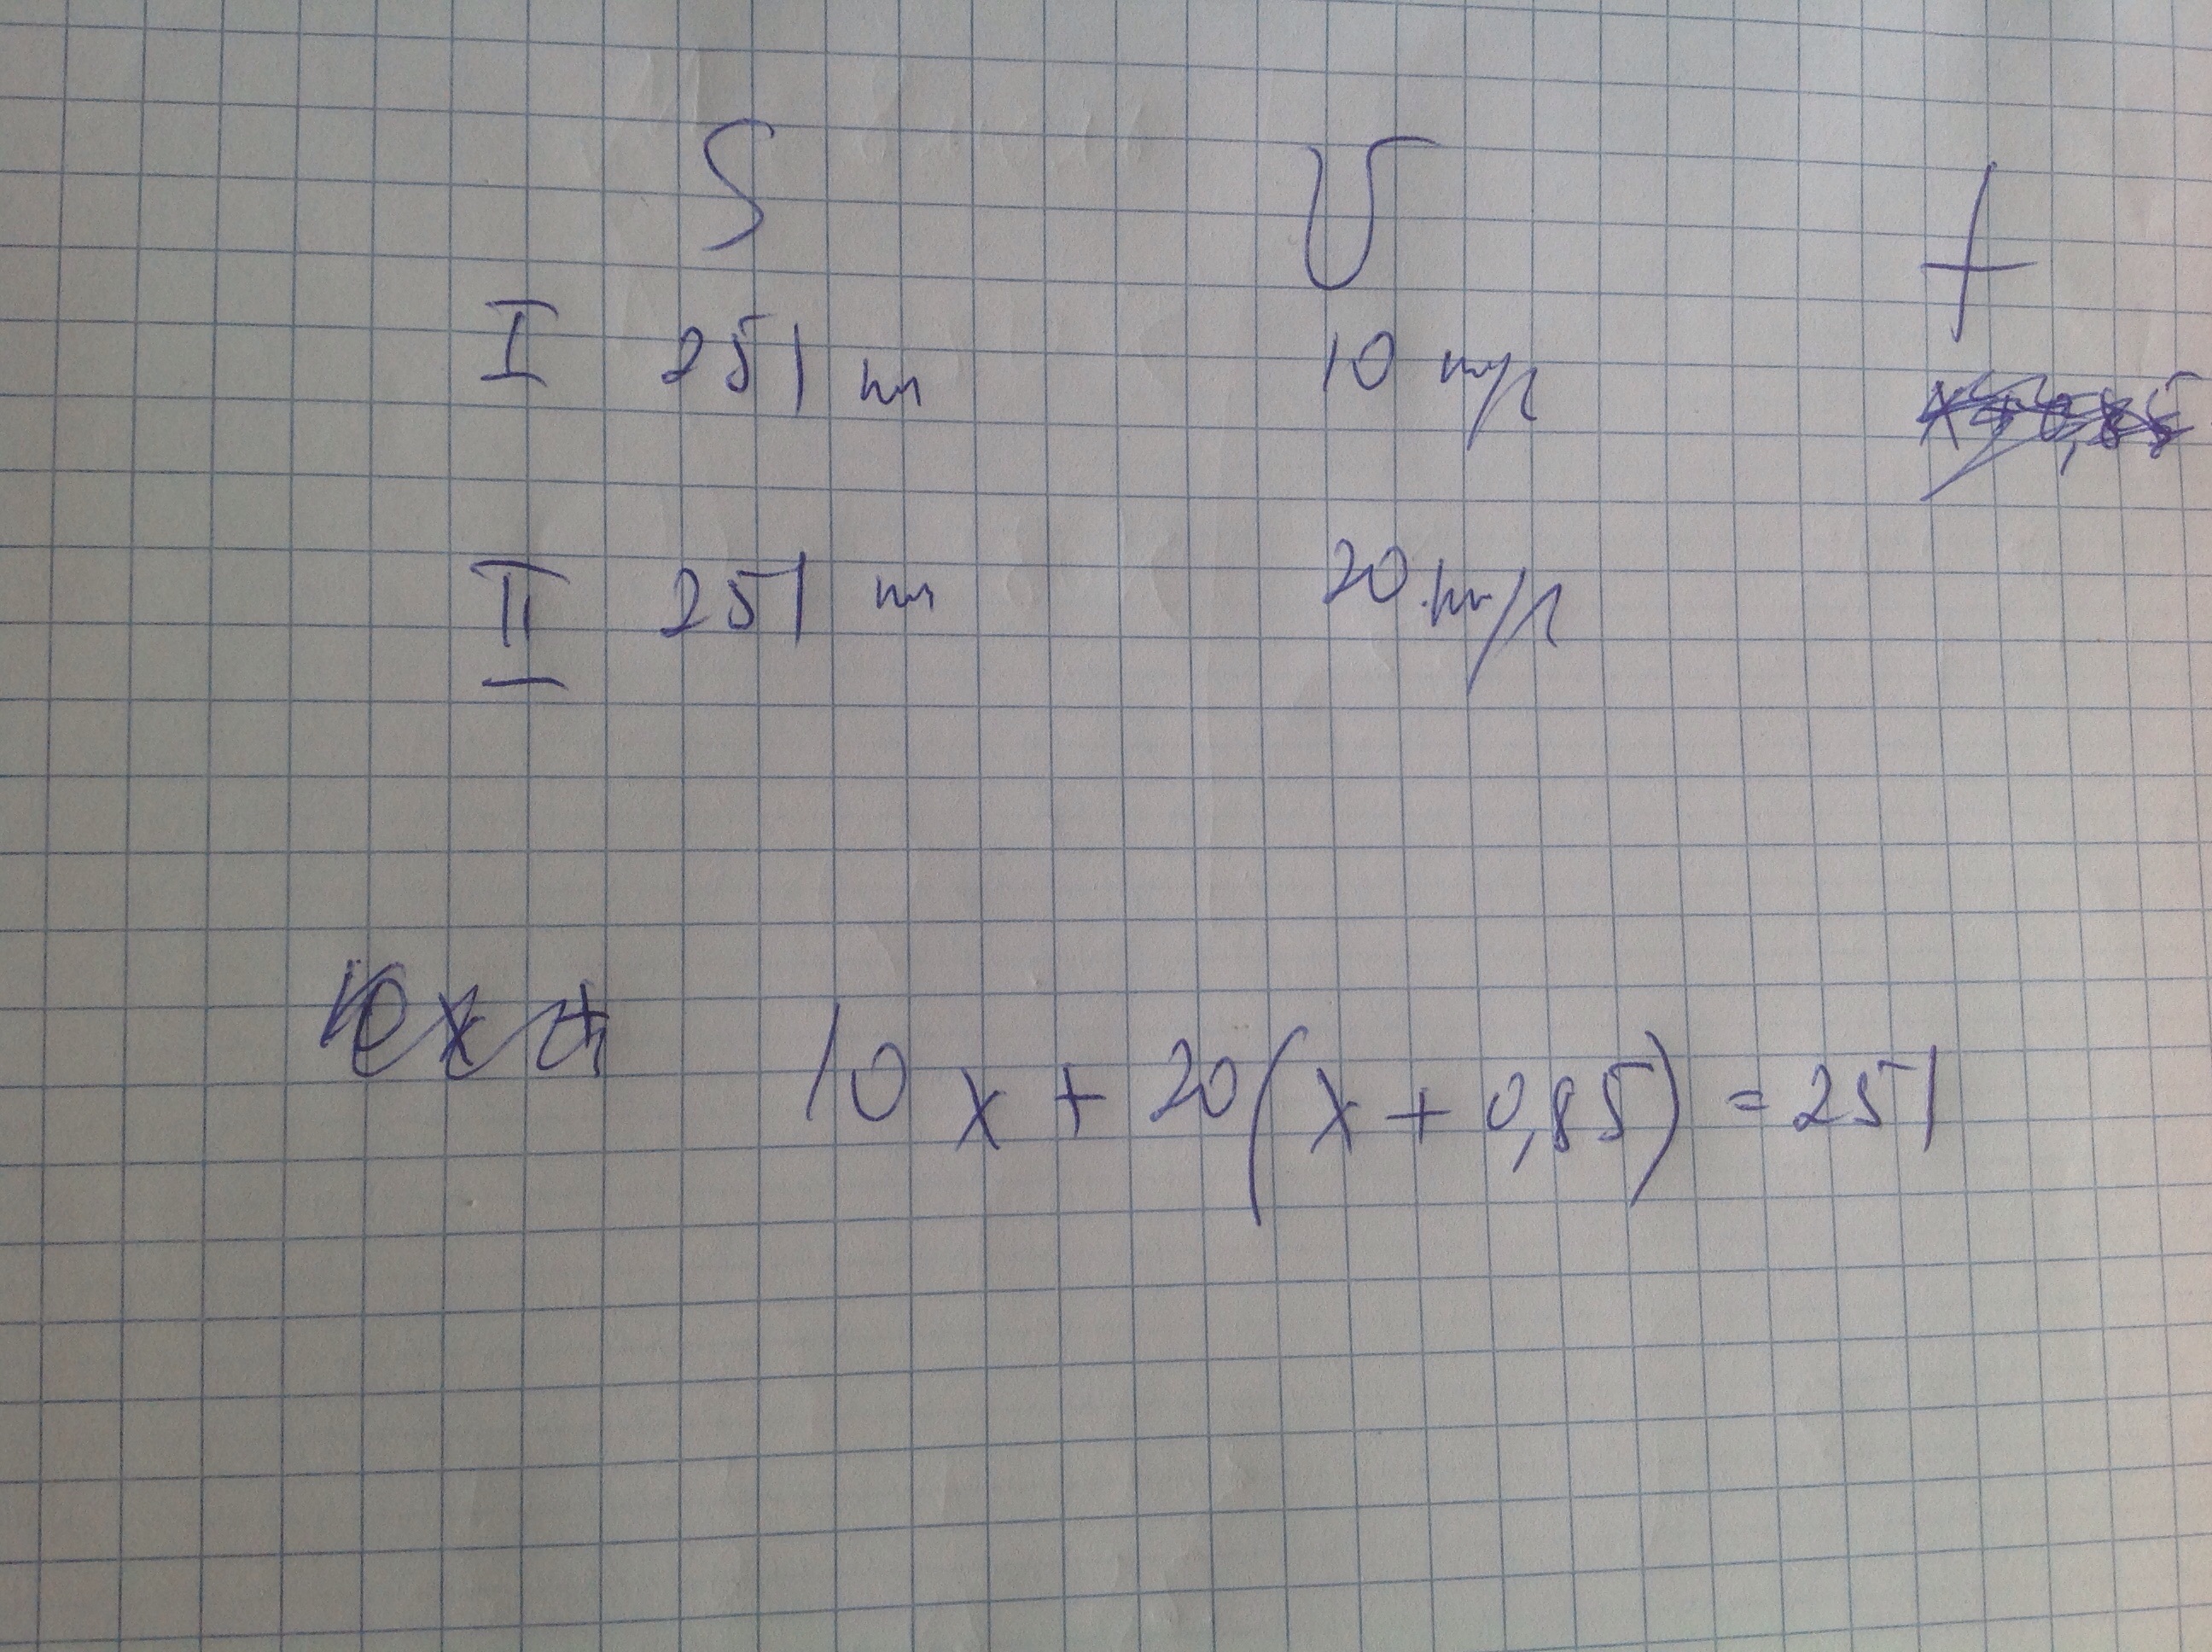 S υ t
I 251 м 10 м/с
II 251 м 20 м/с
10x + 20(x + 0,85) = 251